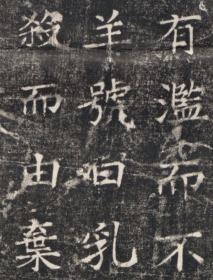 有濫而不
羊號曰乳
殺而由棄